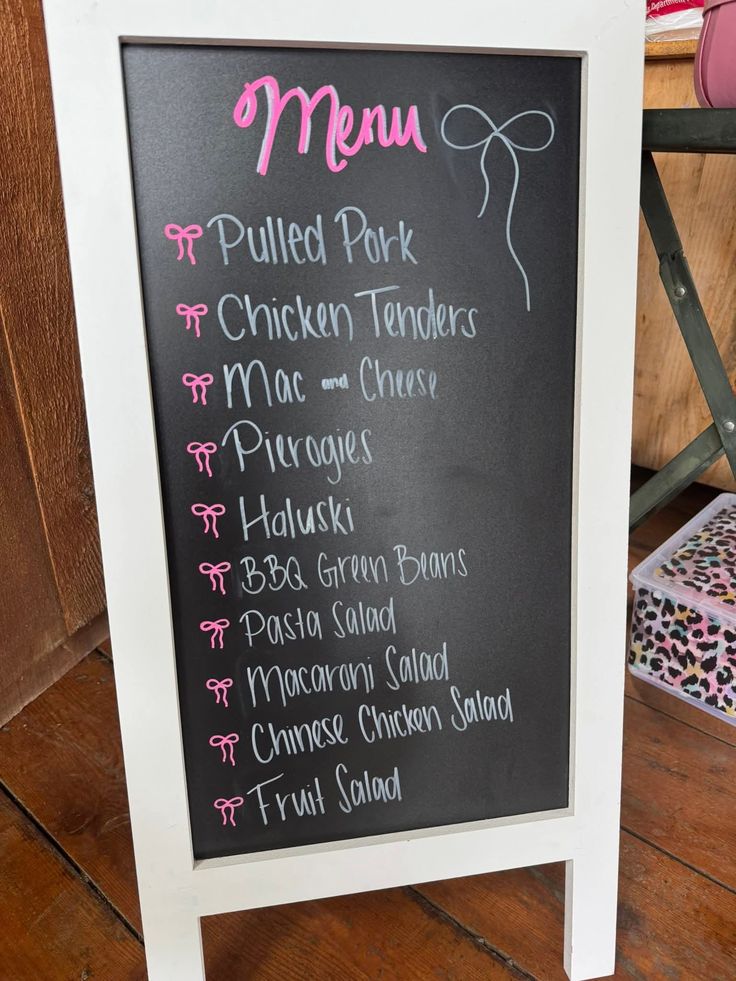 Menu
Pulled Pork
Chicken Tenders
Mac and Cheese
Pierogies
Haluski
BBQ Green Beans
Pasta Salad
Macaroni Salad
Chinese Chicken Salad
Fruit Salad